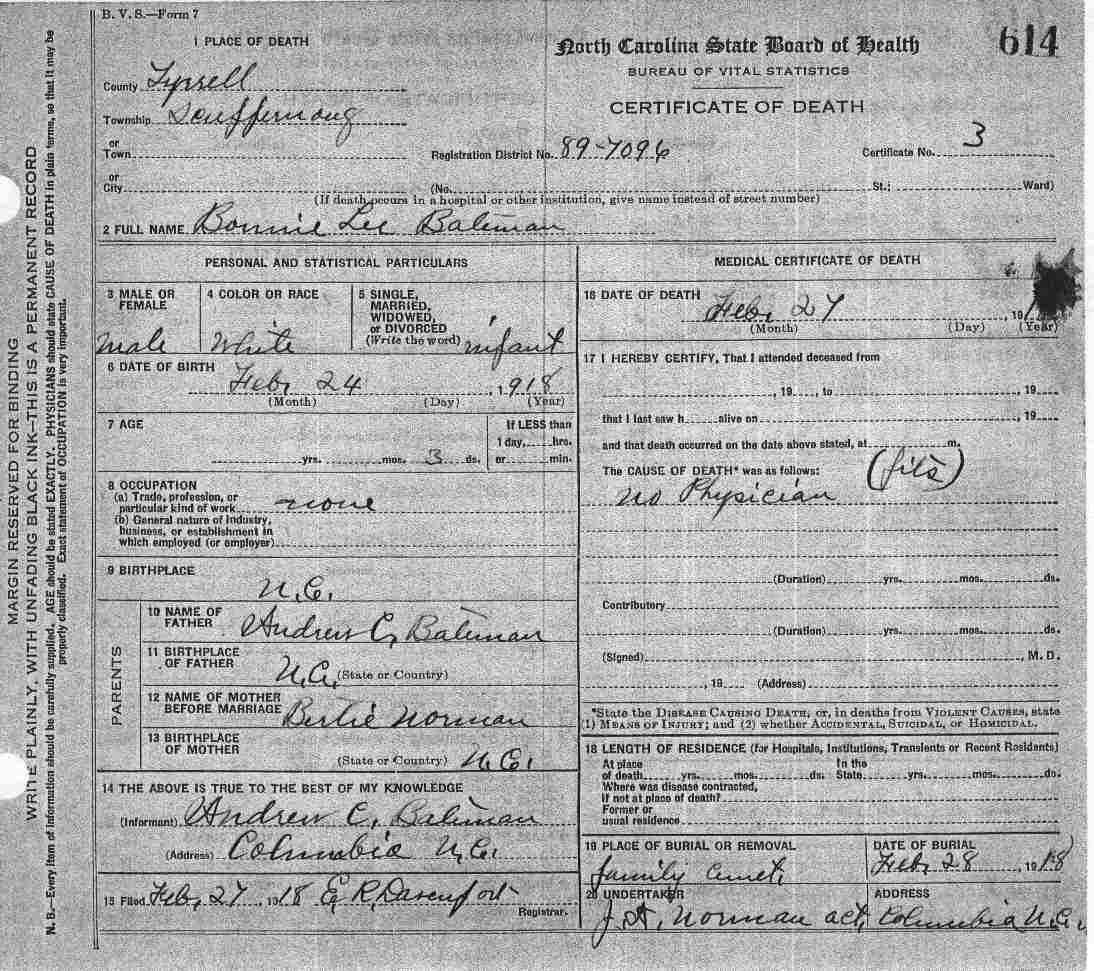 B. V. S.—Form 7
1 PLACE OF DEATH
North Carolina State Board of Health
614
BUREAU OF VITAL STATISTICS
CERTIFICATE OF DEATH
County Tyrrell
Township Scuppernong
or Town
Registration District No. 89-7096
Certificate No. 3
or City (No. St.; Ward)
(If death occurs in a hospital or other institution, give name instead of street number)
2 FULL NAME Bonnie Lee Bateman
PERSONAL AND STATISTICAL PARTICULARS
3 MALE OR FEMALE
male
4 COLOR OR RACE
White
5 SINGLE, MARRIED, WIDOWED, or DIVORCED (Write the word) infant
6 DATE OF BIRTH
Feb, 24, 1918
(Month) (Day) (Year)
7 AGE
yrs. mos. 3 ds.
If LESS than
1 day, hrs.
or min.
8 OCCUPATION
(a) Trade, profession, or
particular kind of work none
(b) General nature of industry,
business, or establishment in
which employed (or employer)
9 BIRTHPLACE
N.C.
PARENTS
10 NAME OF FATHER Andrew C, Bateman
11 BIRTHPLACE OF FATHER N.C. (State or Country)
12 NAME OF MOTHER BEFORE MARRIAGE Bertie Norman
13 BIRTHPLACE OF MOTHER (State or Country) N.C.
14 THE ABOVE IS TRUE TO THE BEST OF MY KNOWLEDGE
(Informant) Andrew C. Bateman
(Address) Columbia N.C.
15 Filed Feb, 27, 1918 E, R, Davenport
Registrar.
MEDICAL CERTIFICATE OF DEATH
16 DATE OF DEATH
Feb, 27, 191
(Month) (Day) (Year)
17 I HEREBY CERTIFY, That I attended deceased from
, 19 , to , 19
that I last saw h alive on , 19
and that death occurred on the date above stated, at m.
The CAUSE OF DEATH* was as follows: (fits)
no Physician
(Duration) yrs. mos. ds.
Contributory
(Duration) yrs. mos. ds.
(Signed) , M. D.
, 19 (Address)
*State the DISEASE CAUSING DEATH, or, in deaths from VIOLENT CAUSES, state
(1) MEANS OF INJURY; and (2) whether ACCIDENTAL, SUICIDAL, or HOMICIDAL.
18 LENGTH OF RESIDENCE (for Hospitals, Institutions, Transients or Recent Residents)
At place In the
of death yrs. mos. ds. State yrs. mos. ds.
Where was disease contracted,
If not at place of death?
Former or
usual residence
19 PLACE OF BURIAL OR REMOVAL
family Cemet,
DATE OF BURIAL
Feb, 28, 1918
20 UNDERTAKER
Norman act,
ADDRESS
Columbia N.C.
MARGIN RESERVED FOR BINDING
WRITE PLAINLY, WITH UNFADING BLACK INK—THIS IS A PERMANENT RECORD
N. B.—Every item of information should be carefully supplied. AGE should be stated EXACTLY. PHYSICIANS should state CAUSE OF DEATH in plain terms, so that it may be
properly classified. Exact statement of OCCUPATION is very important.